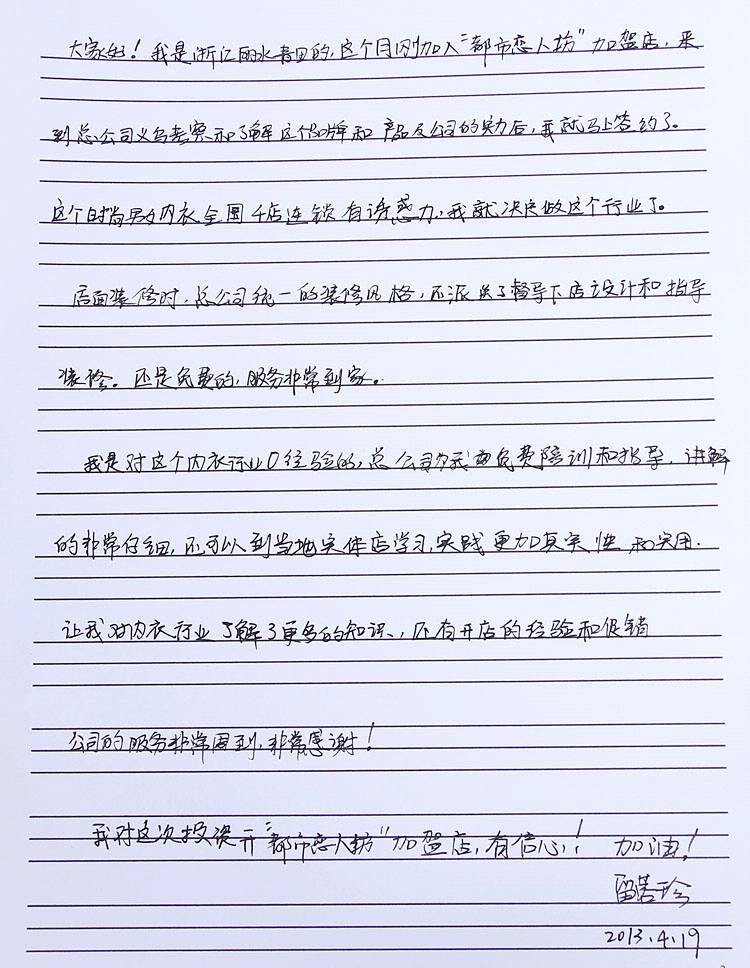 大家好！我是浙江丽水青田的，这个月刚加入“都市恋人坊”加盟店，来
到总公司义乌考察和了解这个品牌和产品及公司的实力后，我就马上签约了。
这个时尚男女内衣全国千店连锁有诱惑力，我就决定做这个行业了。
店面装修时，总公司统一的装修风格，还派送了督导下店设计和指导
装修。还是免费的，服务非常到家。
我是对这个内衣行业0经验的，总公司为我们免费培训和指导，讲解
的非常仔细，还可以到当地实体店学习，实践更加真实性和实用.
让我对内衣行业了解了更多的知识，还有开店的经验和促销
公司的服务非常周到，非常感谢！
我对这次投资开“都市恋人坊”加盟店，有信心！！加油！
留若玲
2013.4.19